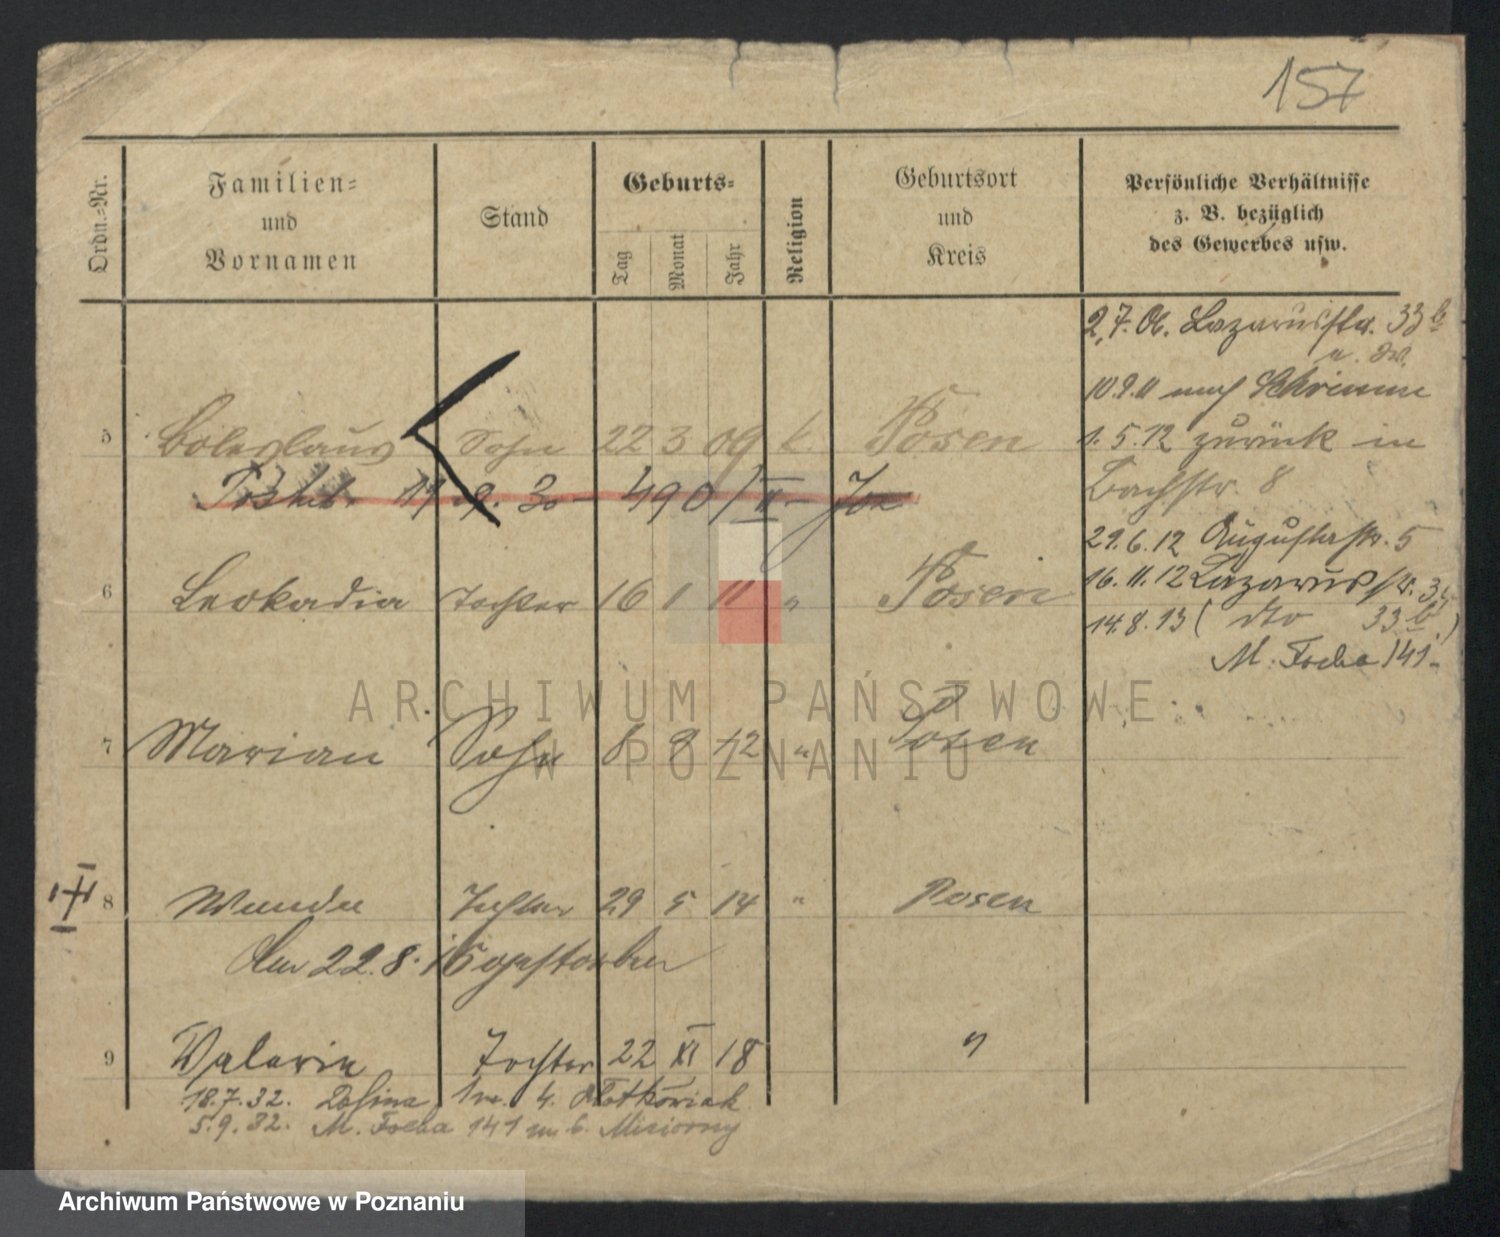 157
Ordn.-Nr.
Familien- und Vornamen
Stand
Geburts-
Tag
Monat
Jahr
Religion
Geburtsort und Kreis
Persönliche Verhältnisse
z. B. bezüglich
des Gewerbes usw.
2.7.06. Lazarusstr. 33b
10.9.11 nach Schrimm
5 Boleslaus Sohn 22 3 09 k. Posen
1.5.12 zurück in
Bachstr. 8
29.6.12 Augustastr. 5
6 Leokadia Tochter 16 1 11 " Posen
16.11.12 Lazarusstr.
14.8.13 ( dto 33b )
M. Focha 141
ARCHIWUM PAŃSTWOWE
W POZNANIU
7 Marian Sohn 8 8 12 " Posen
8 Wanda Tochter 29 5 14 " Posen
Am 22.8.15 gestorben
9 Valerie Tochter 22 XI 18 "
18.7.32. Dolina
5.9.32. M. Focha 141 m 6. Misiorny
Archiwum Państwowe w Poznaniu